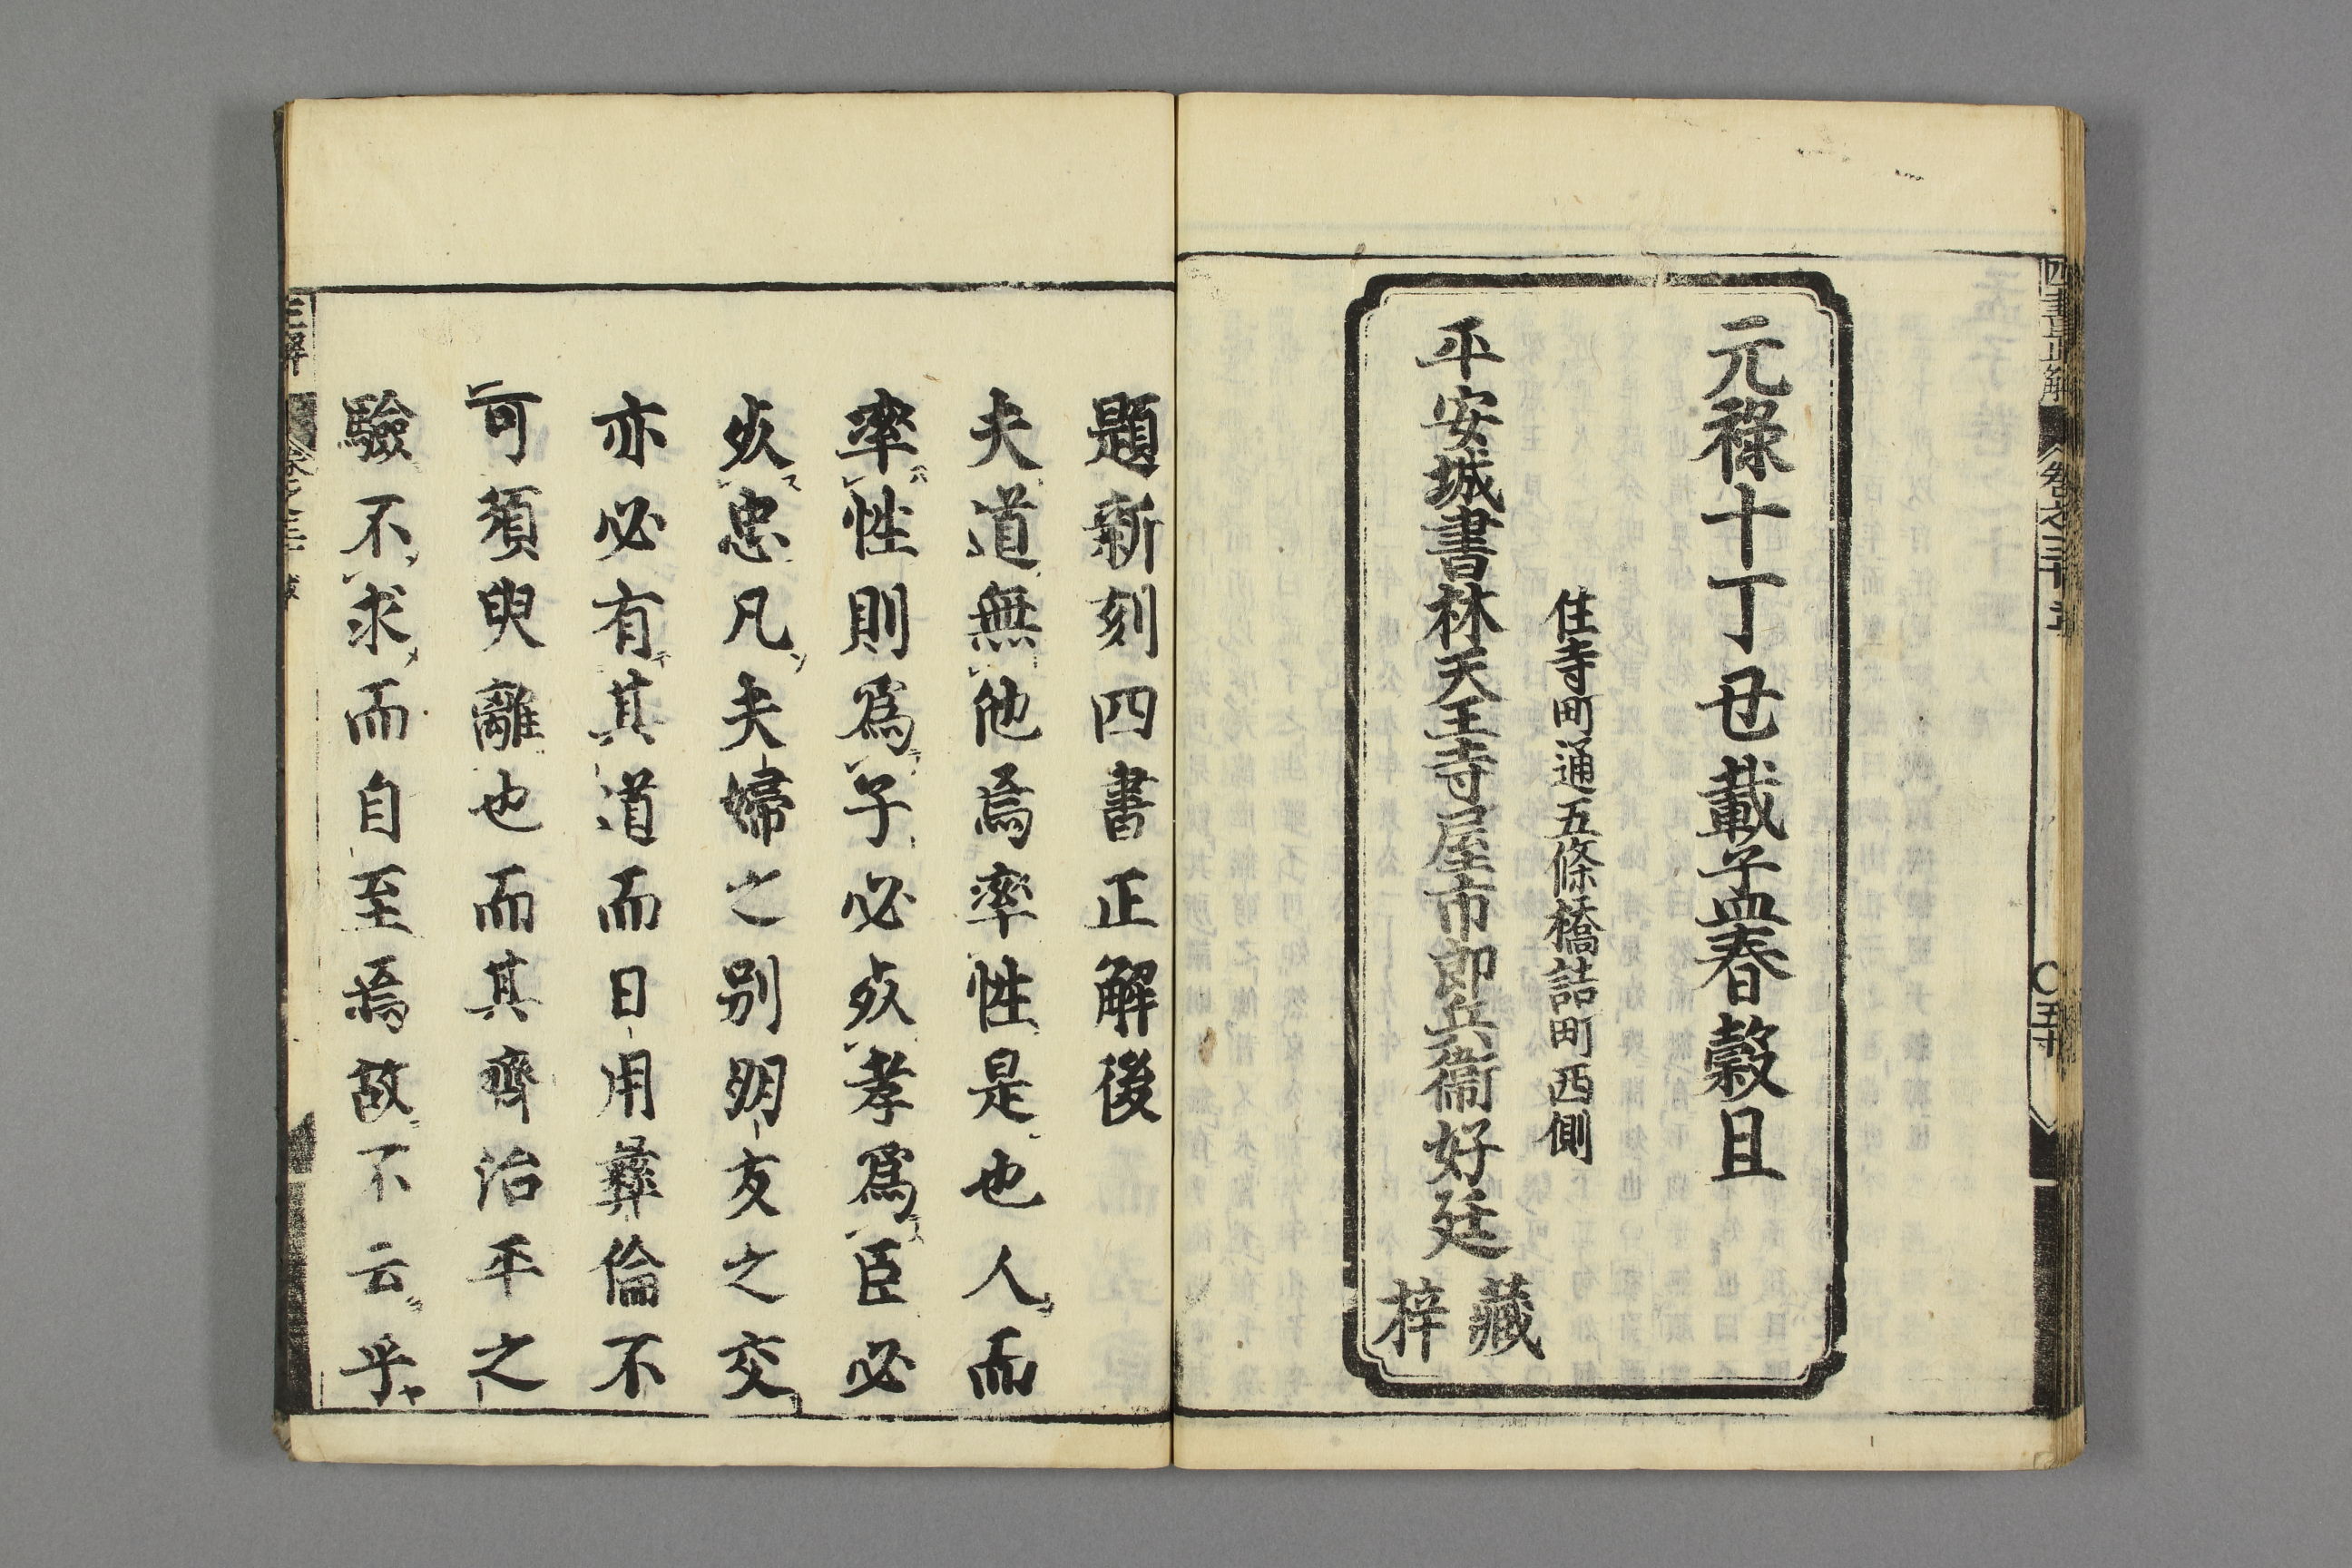 元祿十丁丑載孟春穀旦
住寺町通五條橋詰町西側
平安城書林天王寺屋市郎兵衞好廷
藏
梓
四書正解
卷之三十
〇五十
題新刻四書正解後
夫道無他焉率性是也人而
率性則爲子必㱕孝爲臣必
㱕忠凡夫婦之別朋友之交
亦必有其道而日用彝倫不
可須臾離也而其齊治平之
驗不求而自至焉故不云乎